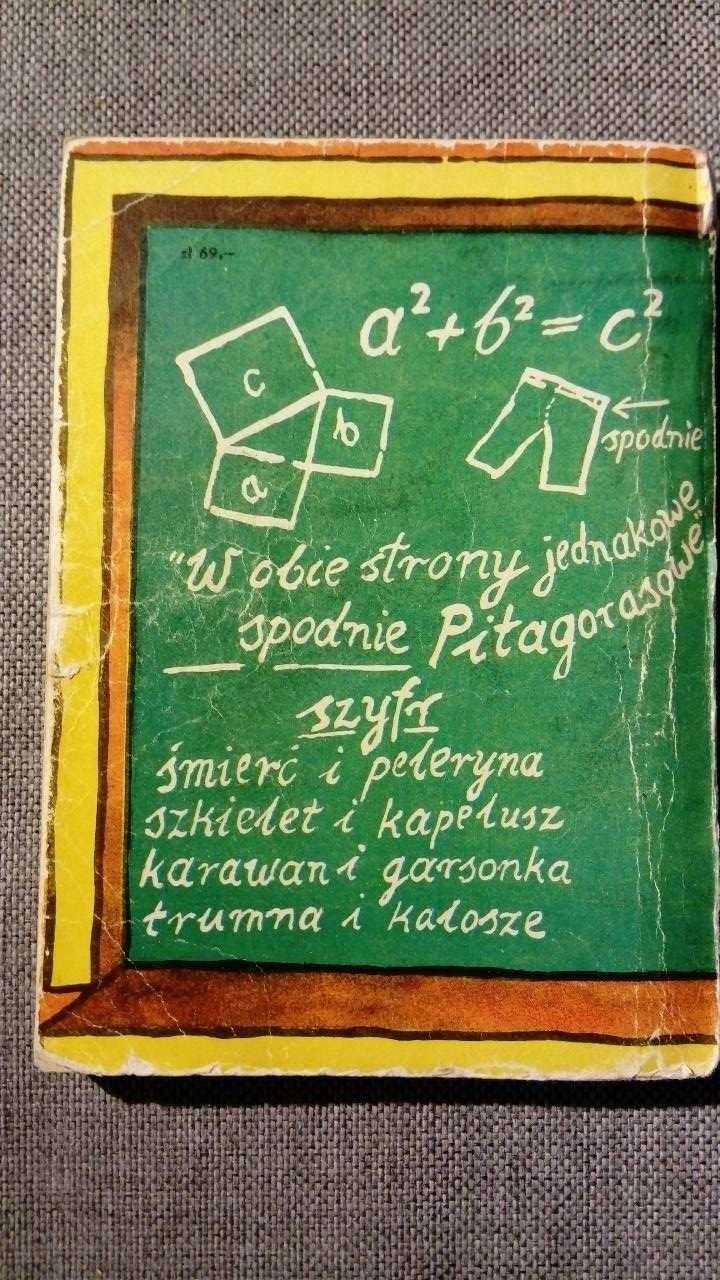 zł 69,–
a² + b² = c²
c
b
a
spodnie
"W obie strony jednakowe
spodnie Pitagorasowe"
szyfr
śmierć i peleryna
szkielet i kapelusz
karawan i garsonka
trumna i kalosze